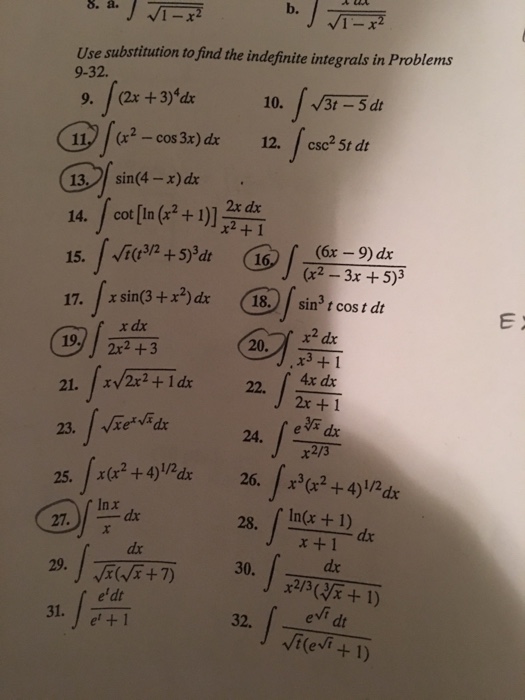 8. a. ∫ √1 − x² b. ∫ √1 − x²
Use substitution to find the indefinite integrals in Problems
9-32.
9. ∫ (2x + 3)⁴ dx 10. ∫ √3t − 5 dt
11. ∫ (x² − cos 3x) dx 12. ∫ csc² 5t dt
13. ∫ sin(4 − x) dx
14. ∫ cot [ln (x² + 1)] 2x dx / x² + 1
15. ∫ √t(t^3/2 + 5)³ dt 16. ∫ (6x − 9) dx / (x² − 3x + 5)³
17. ∫ x sin(3 + x²) dx 18. ∫ sin³ t cos t dt
19. ∫ x dx / 2x² + 3 20. ∫ x² dx / x³ + 1
21. ∫ x√2x² + 1 dx 22. ∫ 4x dx / 2x + 1
23. ∫ √x e^x√x dx 24. ∫ e^∛x dx / x^2/3
25. ∫ x(x² + 4)^1/2 dx 26. ∫ x³(x² + 4)^1/2 dx
27. ∫ ln x / x dx 28. ∫ ln(x + 1) / x + 1 dx
29. ∫ dx / √x(√x + 7) 30. ∫ dx / x^2/3(∛x + 1)
31. ∫ e^t dt / e^t + 1 32. ∫ e^√t dt / √t(e^√t + 1)